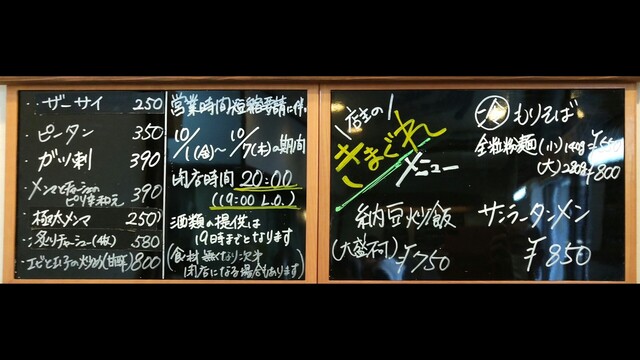 ザーサイ 250
ピータン 350
ガツ刺 390
メンマとチャーシューの
ピリ辛和え 390
極太メンマ 250
炙りチャーシュー(4枚) 580
エビと玉子の炒め(甘酢) 800
営業時間短縮要請に伴い
10/1(金)〜10/7(木)の期間
閉店時間 20:00
(19:00 L.O.)
酒類の提供は
19時までとなります
(食材無くなり次第
閉店になる場合もあります)
店主の
きまぐれ
メニュー
納豆炒飯
(大盛不可) ¥750
冷 もりそば
全粒粉麺(小)140g ¥550
(大)280g ¥800
サンラータンメン
¥850